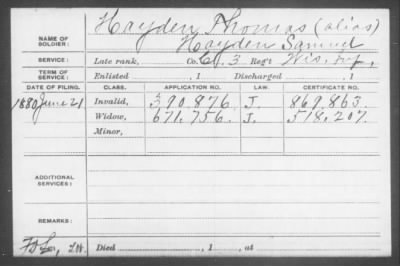 Hayden Thomas (alias)
NAME OF SOLDIER: Hayden Samuel
SERVICE: Late rank, Co. G, 3 Reg't Wis. Inf.
TERM OF SERVICE: Enlisted , 1 Discharged , 1
DATE OF FILING. CLASS. APPLICATION NO. LAW. CERTIFICATE NO.
1880 June 21 Invalid, 390.876. J. 869.863.
Widow, 671,756. J. 518,207.
Minor,
ADDITIONAL SERVICES:
REMARKS:
Died , 1 , at